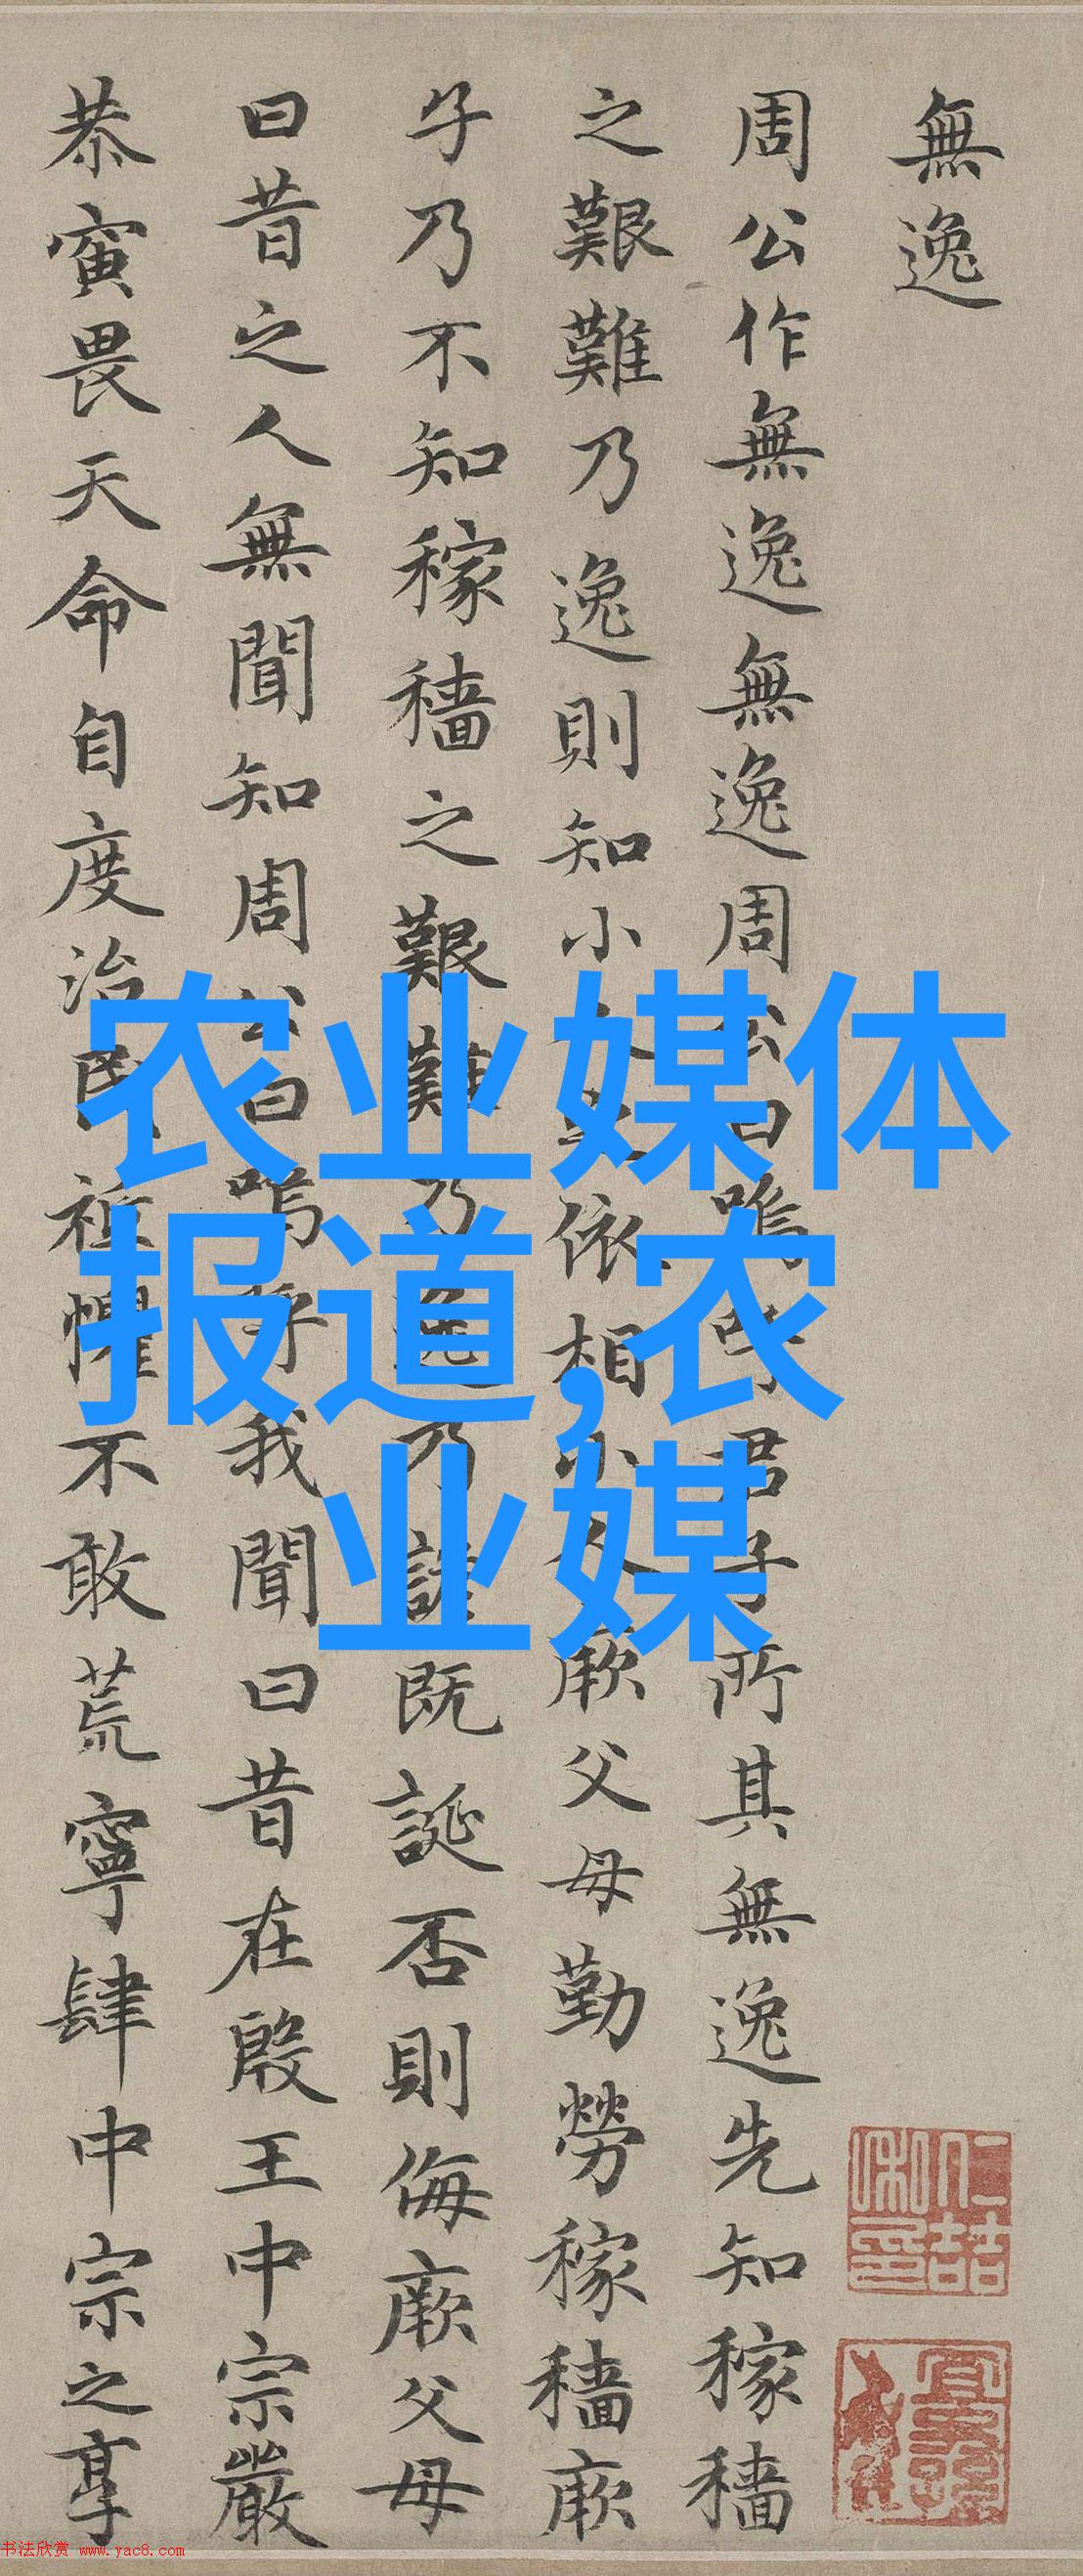 無逸
周公作無逸無逸周公曰嗚呼君子所其無逸先知稼穡
之艱難乃逸則知小人之依相小人厥父母勤勞稼穡厥
子乃不知稼穡之艱難乃逸乃諺既誕否則侮厥父母
曰昔之人無聞知周公曰嗚呼我聞曰昔在殷王中宗嚴
恭寅畏天命自度治民祗懼不敢荒寧肆中宗之享
农业媒体
报道,农
业媒
书法欣赏 www.yac8.com